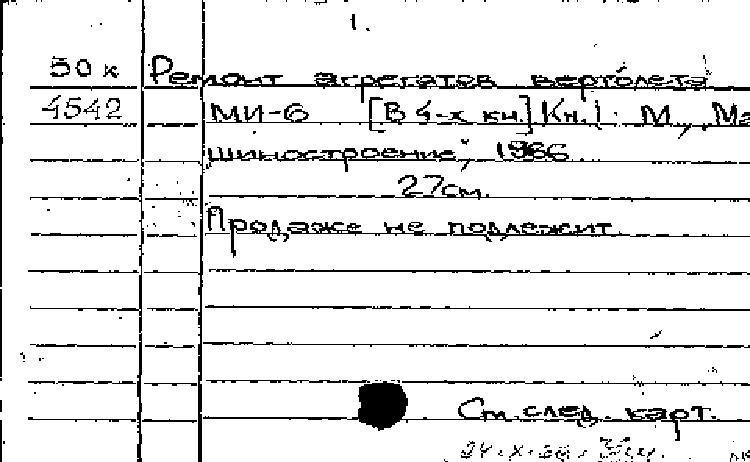 1.
50к Ремонт агрегатов вертолета
4542 МИ-6 [В 4-х кн.] Кн.1. М., Ма
шиностроение, 1966
27см.
Продаже не подлежит.
См. след. карт.